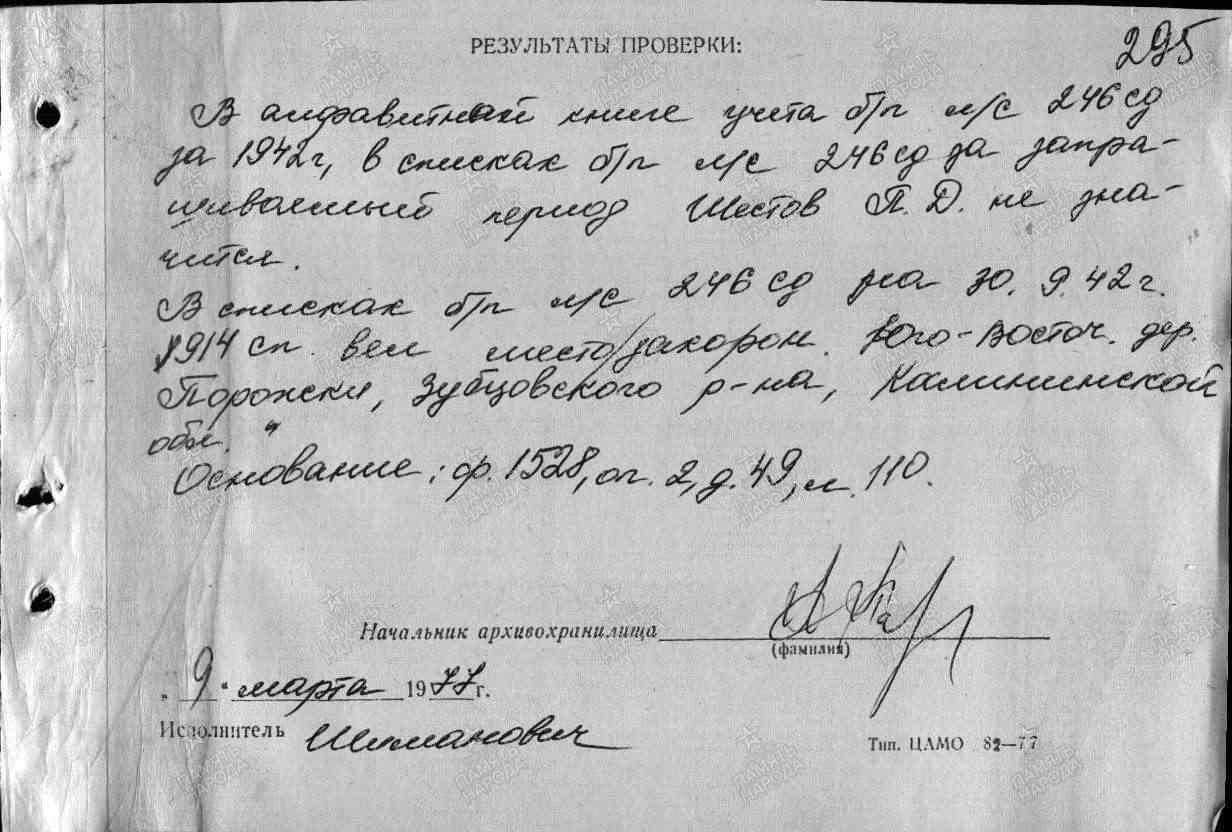 РЕЗУЛЬТАТЫ ПРОВЕРКИ:
295
В алфавитной книге учета б/п л/с 246 сд
за 1942 г, в списках б/п л/с 246 сд за запра-
шиваемый период Шестов П. Д. не зна-
чится.
В списках б/п л/с 246 сд на 30. 9. 42 г.
1914 сп. вел место/захорон. Юго-Восточ. дер.
Порожски, Зубцовского р-на, Калининской
обл. "
Основание: ф. 1528, оп. 2, д. 49, л. 110.
Начальник архивохранилища
(фамилия)
„ 9 " марта 1977 г.
Исполнитель Шиманович
Тип. ЦАМО 82—77
ПАМЯТЬ НАРОДА